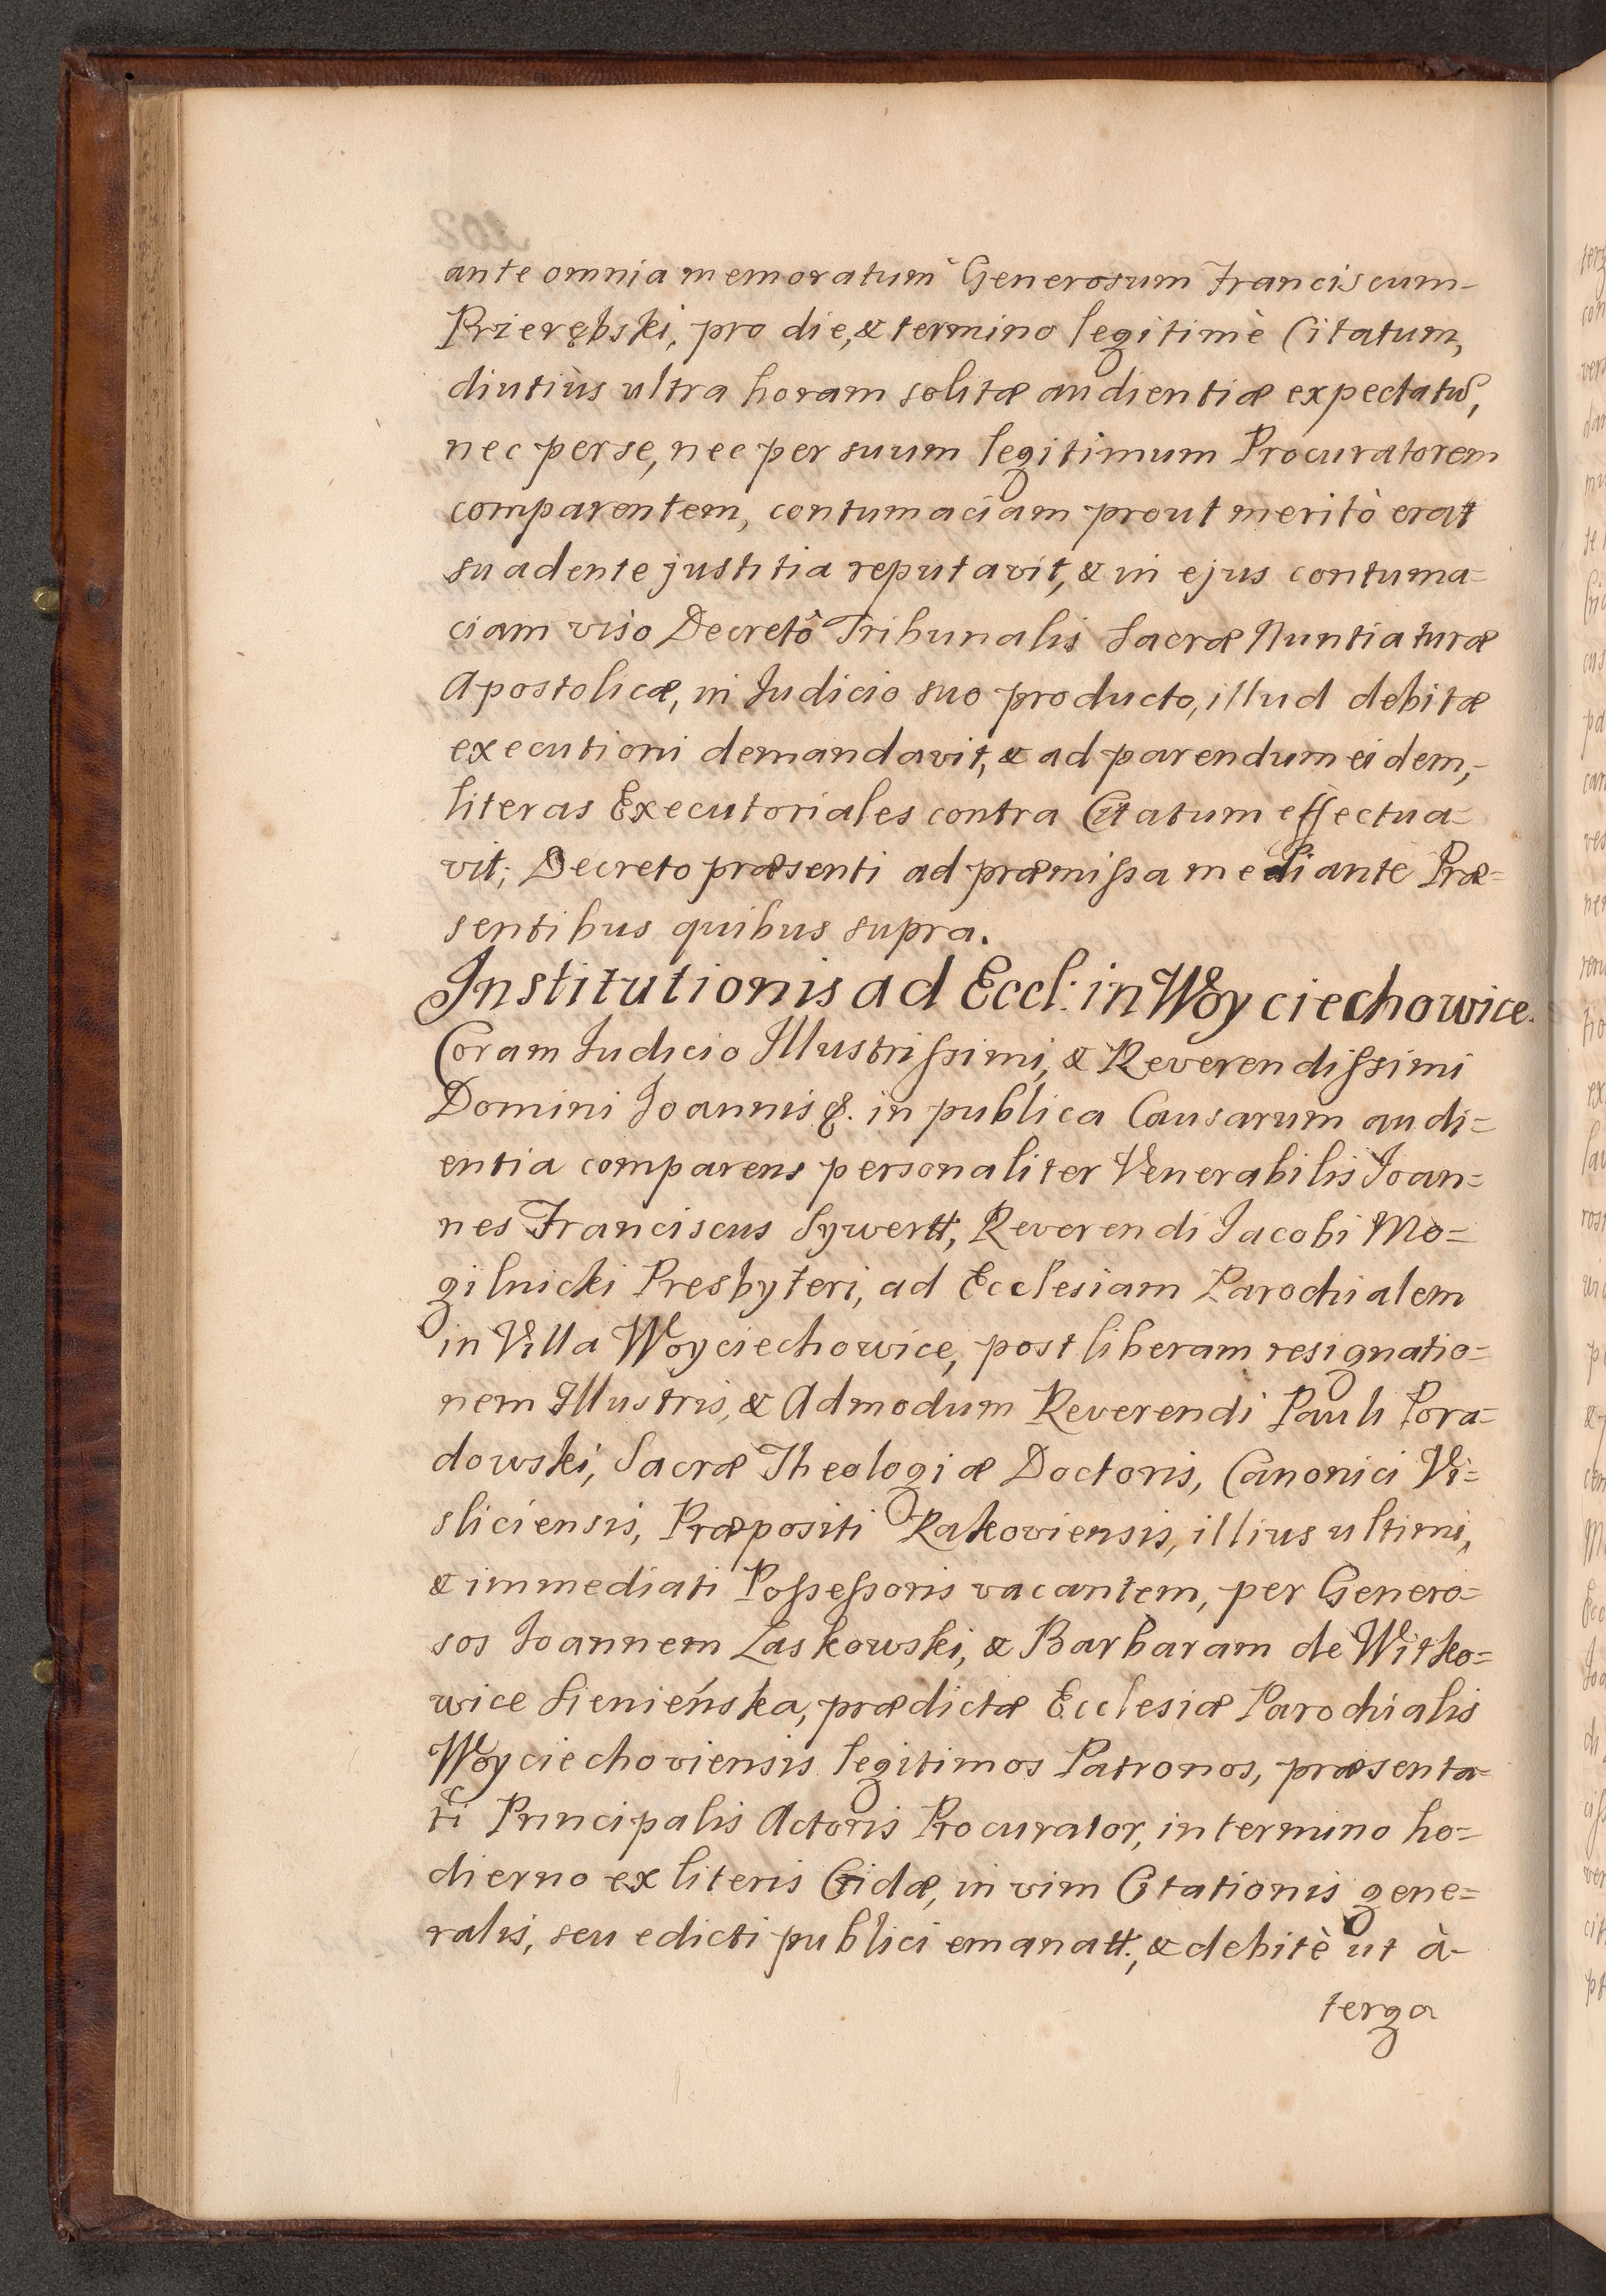 ante omnia memoratum Generosum Franciscum-
Przierębski, pro die, & termino legitimè Citatum,
diutiùs ultra horam solitæ audientiæ expectatũ,
nec per se, nec per suum legitimum Procuratorem
comparentem, contumaciam prout meritò erat
suadente justitia reputavit, & in ejus contuma=
ciam viso Decretô Tribunalis Sacræ Nuntiaturæ
Apostolicæ, in Judicio suo producto, illud debitæ
executioni demandavit, & ad parendum eidem,-
literas Executoriales contra Citatum effectua=
vit; Decreto præsenti ad præmissa mediante Præ=
sentibus quibus supra.
Institutionis ad Eccl: in Woyciechowice.
Coram Judicio Illustrissimi, & Reverendissimi
Domini Joannis &. in publica Causarum audi=
entia comparens personaliter Venerabilis Joan=
nes Franciscus Sywertt, Reverendi Jacobi Mo=
gilnicki Presbyteri, ad Ecclesiam Parochialem
in Villa Woyciechowice, post liberam resignatio=
nem Illustris, & Admodum Reverendi Pauli Pora=
dowski, Sacræ Theologiæ Doctoris, Canonici Vi=
sliciensis, Præpositi Rakoviensis, illius ultimi,
& immediati Possessoris vacantem, per Genero=
sos Joannem Laskowski, & Barbaram de Witko=
wice Sienieńska, prædictæ Ecclesiæ Parochialis
Woyciechoviensis legitimos Patronos, præsenta=
ti Principalis Actoris Procurator, in termino ho=
dierno ex literis Cridæ, in vim Citationis gene=
ralis, seu edicti publici emanatt:, & debitè ut à-
terga